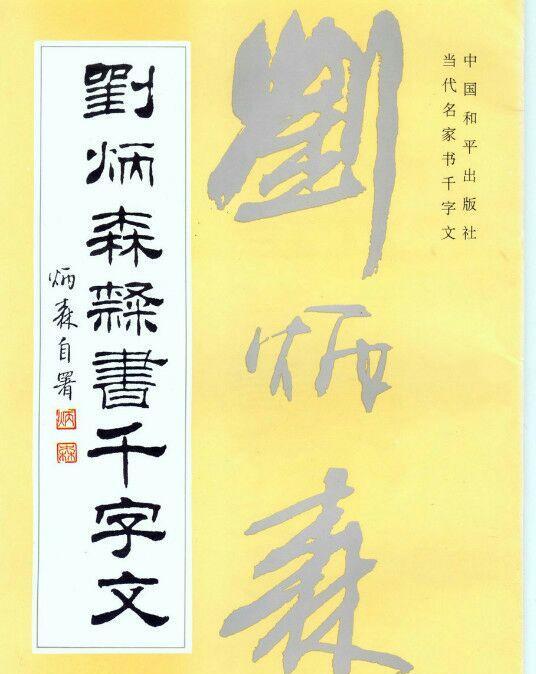 中国和平出版社
当代名家书千字文
劉炳森
劉炳森隸書千字文
炳森自署
炳
森